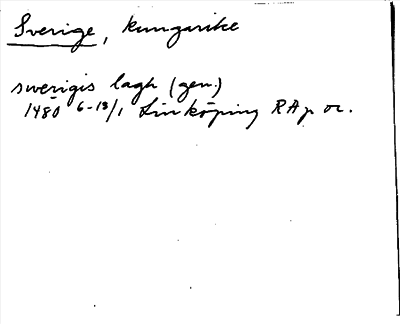 Sverige, kungarike
swerigis lagh (gen.)
1480 6-13/1 Linköping RAp or.